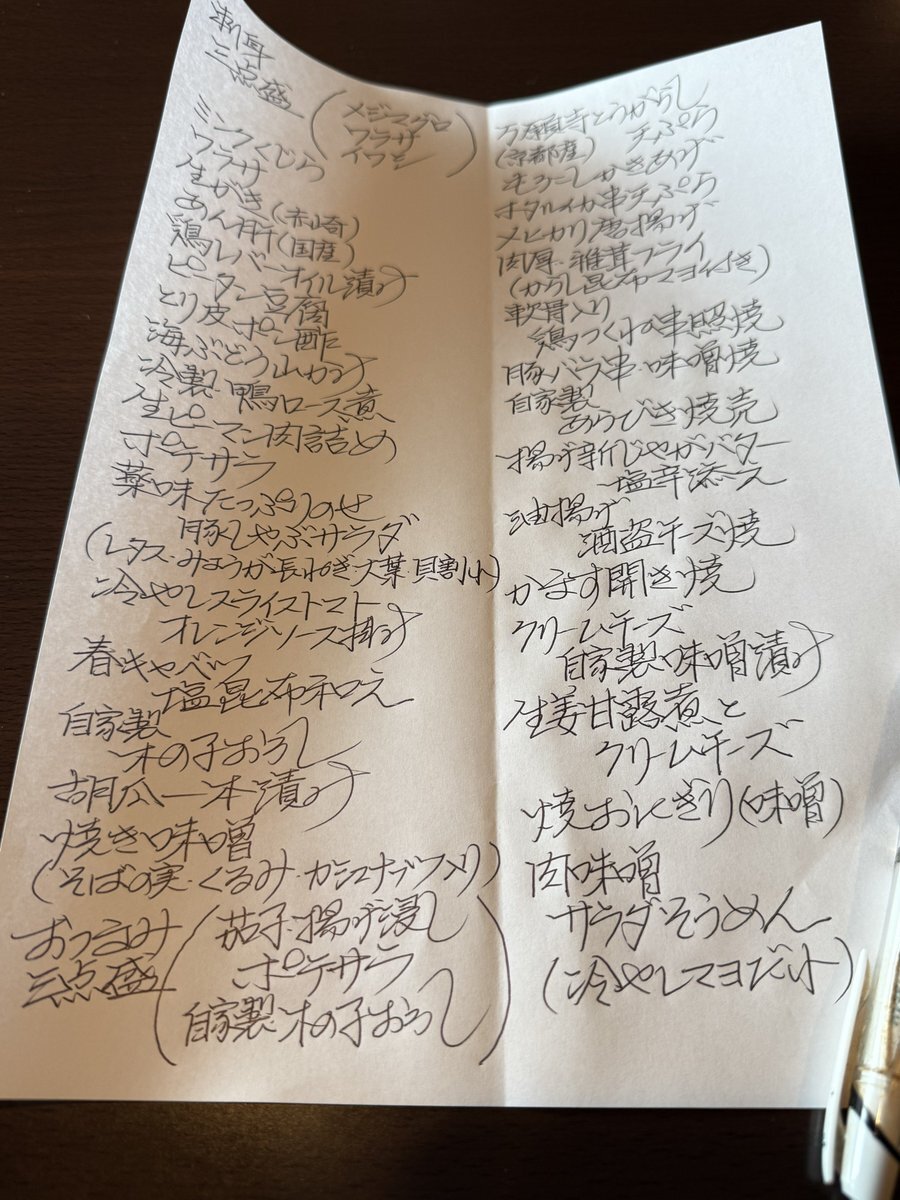 刺身
三点盛(メジマグロ
ワラサ
イワシ)
ミンクくじら
ワラサ
生がき(赤崎)
あん肝(国産)
鶏レバーオイル漬け
ピータン豆腐
とり皮ポン酢
海ぶどう山かけ
冷製・鴨ロース煮
生ピーマン肉詰め
ポテサラ
薬味たっぷりのせ
豚しゃぶサラダ
(レタス・みょうが・長ねぎ・大葉・貝割れ)
冷やしスライストマト
オレンジソース掛け
春キャベツ
塩昆布和え
自家製
木の子おろし
胡瓜一本漬け
焼き味噌
(そばの実・くるみ・カシューナッツ入り)
おつまみ
三点盛(茄子・揚げ浸し
ポテサラ
自家製木の子おろし)
万願寺とうがらし
(京都産) 天ぷら
もろこしかきあげ
ホタルイカ串天ぷら
メヒカリ唐揚げ
肉厚・椎茸フライ
(からし昆布マヨ付き)
軟骨入り
鶏つくねの串照焼
豚バラ串・味噌焼
自家製
あらびき焼売
揚げ新じゃがバター
塩辛添え
油揚げ
酒盗チーズ焼
かます開き焼
クリームチーズ
自家製味噌漬け
生姜甘露煮と
クリームチーズ
焼おにぎり(味噌)
肉味噌
サラダそうめん
(冷やしマヨだれ)